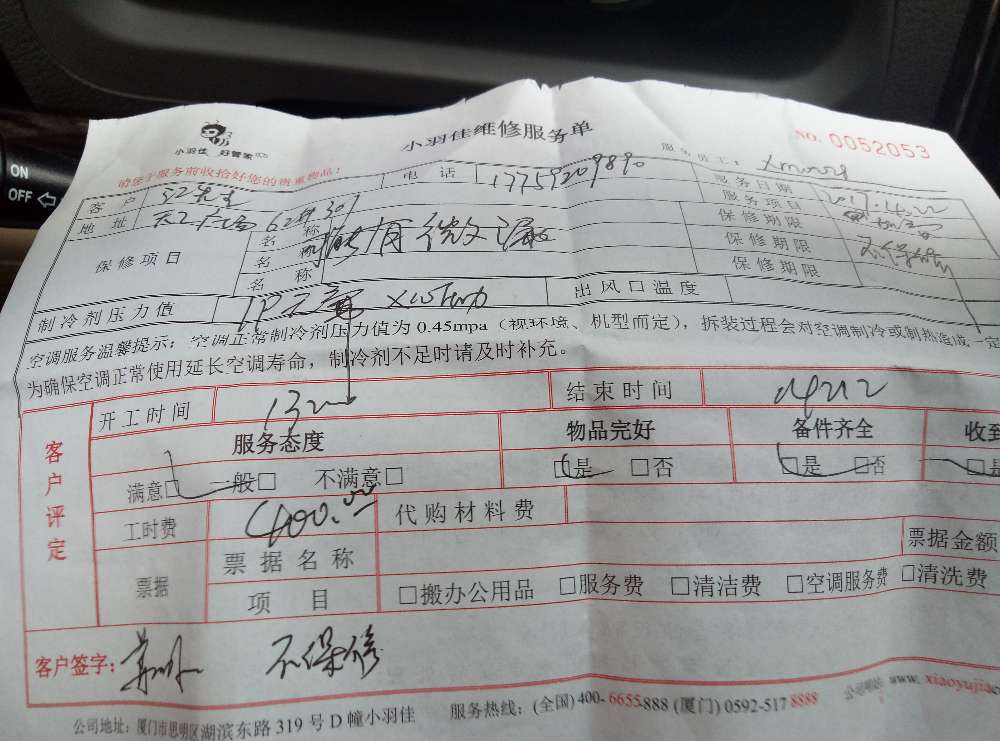 ON
OFF
小羽佳 好管家
小羽佳维修服务单
NO. 0052053
请您于服务前收拾好您的贵重物品！
服务员工：
客户 江先生 电话 17759209890 服务日期
地址 天工广场 629# 301 服务项目
保修项目 名称 保修期限 不保修
名称 有微漏 保修期限
名称 保修期限
制冷剂压力值 出风口温度
空调服务温馨提示：空调正常制冷剂压力值为0.45mpa（视环境、机型而定），拆装过程会对空调制冷或制热造成一定
为确保空调正常使用延长空调寿命，制冷剂不足时请及时补充。
客户评定
开工时间 结束时间
服务态度 物品完好 备件齐全 收到
满意□ 一般□ 不满意□ □是 □否 □是 □否 □是
工时费 400.00 代购材料费
票据 票据名称 票据金额
项目 □搬办公用品 □服务费 □清洁费 □空调服务费 □清洗费
客户签字： 不保修
公司地址：厦门市思明区湖滨东路319号D幢小羽佳 服务热线：(全国)400-6655.888 (厦门)0592-517 8888 公司网站 www.xiaoyujia